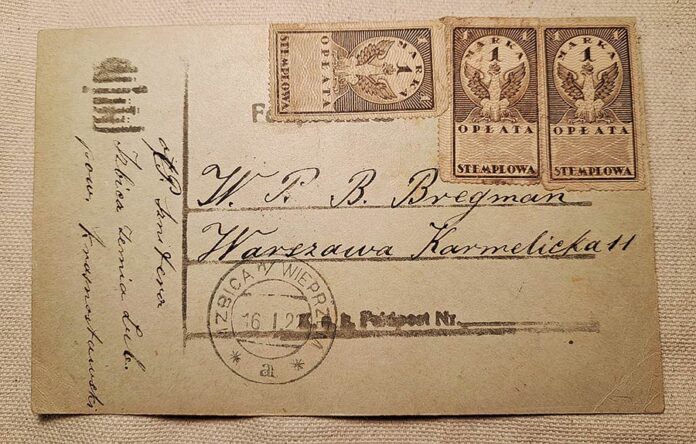 MARKA
1
OPŁATA
STEMPLOWA
MARKA
1
OPŁATA
STEMPLOWA
MARKA
1
OPŁATA
STEMPLOWA
W. P. B. Bregman
Warszawa Karmelicka 11
IZBICA n/ WIEPRZEM
16 I 2
a
K. u. k. Feldpost Nr.
Izbica Ziemia Lub.
pow. Krasnostawski